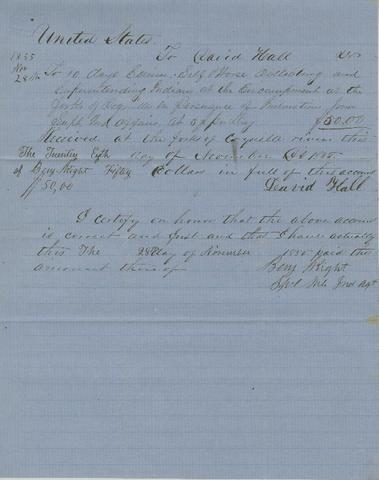 United States
To David Hall Dr
1855
Nov
28th To 10 days Service, Self & Horse Collecting and
Superintending Indians at the Encampment at the
forks of Coq. in Persuance of Instruction from
Supt Ind Affairs, at $5 pr Day $50.00
Received at the forks of Coquelle river this
The Twenty Eigth day of November AD 1855
of Benj Wright Fifty Dollars in full of this account
$50,00 David Hall
I certify on honor that the above account
is correct and Just and that I have actually
this The 28th day of November 1855 paid the
amount thereof
Benj Wright
Ind Agt